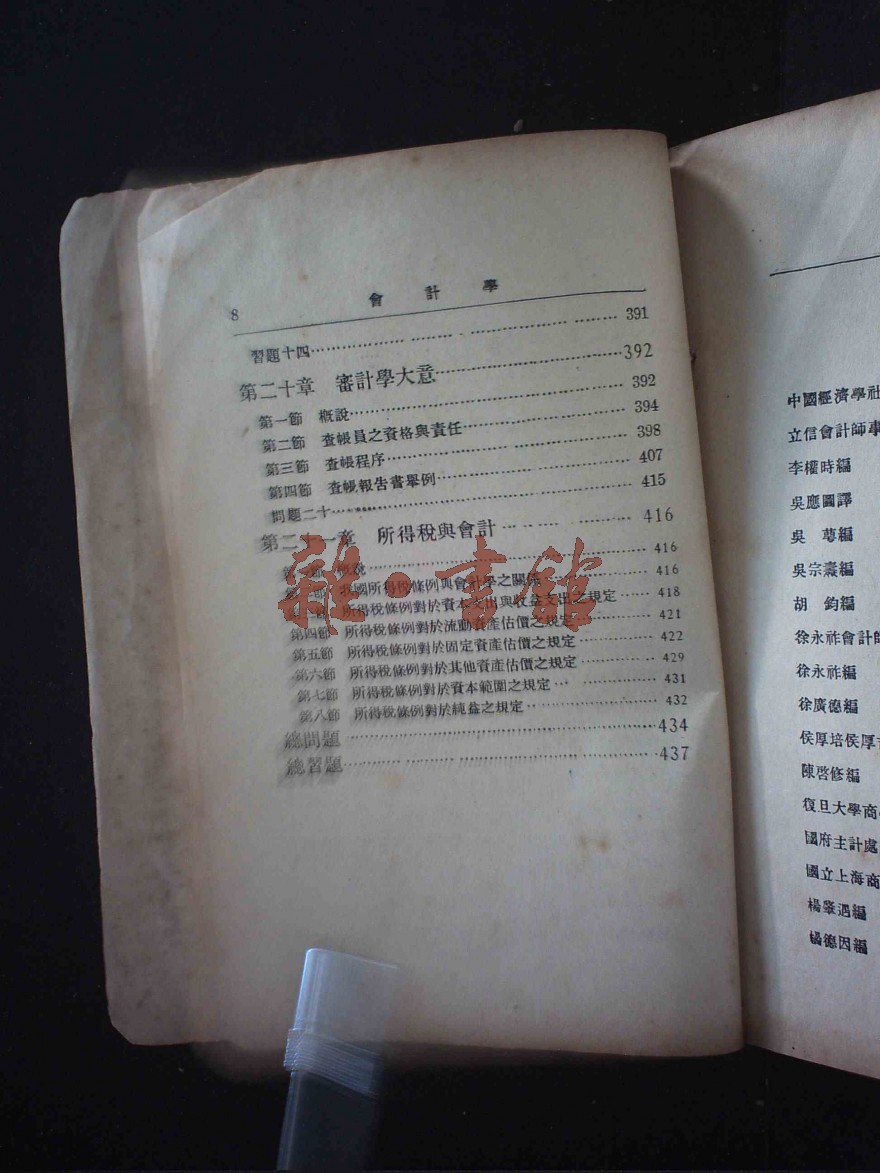 8 會計學
習題十四 391
第二十章 審計學大意 392
第一節 概說 392
第二節 查帳員之資格與責任 394
第三節 查帳程序 398
第四節 查帳報告書舉例 407
問題二十 415
第二十一章 所得稅與會計 416
第一節 概說 416
第二節 我國所得稅條例與會計學之關係 416
第三節 所得稅條例對於資本支出與收益支出之規定 418
第四節 所得稅條例對於流動資產估價之規定 421
第五節 所得稅條例對於固定資產估價之規定 422
第六節 所得稅條例對於其他資產估價之規定 429
第七節 所得稅條例對於資本範圍之規定 431
第八節 所得稅條例對於純益之規定 432
總問題 434
總習題 437
雜·書館
中國經濟學社
立信會計師事
李權時編
吳應圖譯
吳蕚編
吳宗燾編
胡鈞編
徐永祚會計師
徐永祚編
徐廣德編
侯厚培侯厚
陳啓修編
復旦大學商
國府主計處
國立上海商
楊肇遇編
楊德因編